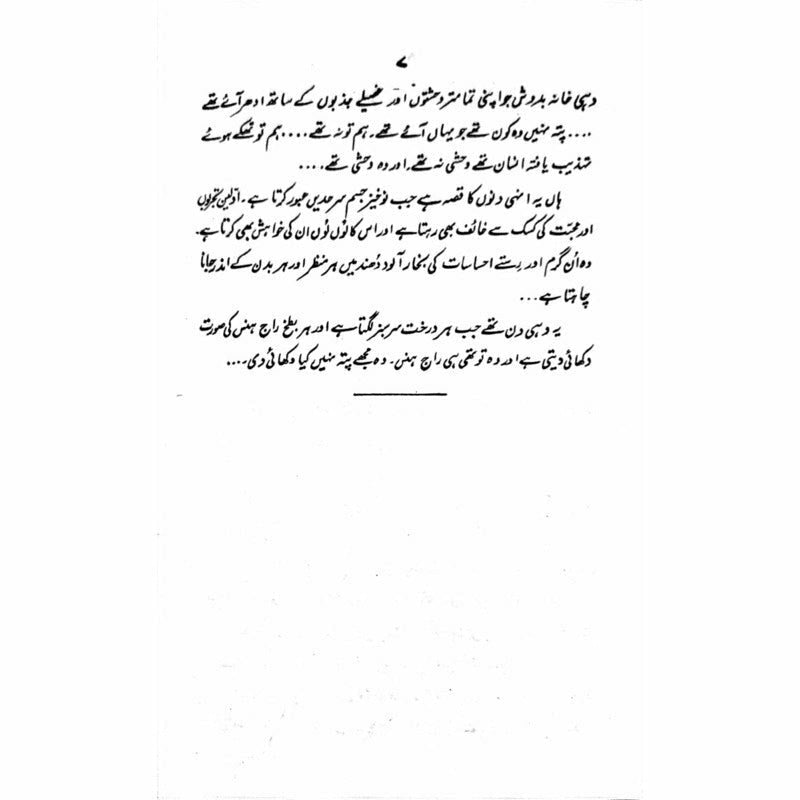 ۷
وہی خانہ بدوش جو اپنی تمام تر وحشتوں اور غصیلے جذبوں کے ساتھ ادھر آئے تھے
.... پتہ نہیں وہ کون تھے جو یہاں آئے تھے۔ ہم تو نہ تھے .... ہم تو تھکے ہوئے
تہذیب یافتہ انسان تھے وحشی نہ تھے۔ اور وہ وحشی تھے ....
ہاں یہ انہی دنوں کا قصہ ہے جب نوخیز جسم سرحدیں عبور کرتا ہے۔ اولین تجربوں
اور محبّت کی کسک سے خائف بھی رہتا ہے اور اس کا لُوں لُوں ان کی خواہش بھی کرتا ہے۔
وہ اُن گرم اور رستے احساسات کی بخار آلود دُھند میں ہر منظر اور ہر بدن کے اندر جانا
چاہتا ہے ...
یہ وہی دن تھے جب ہر درخت سرسبز لگتا ہے اور ہر بطخ راج ہنس کی صورت
دکھائی دیتی ہے اور وہ تو تھی ہی راج ہنس۔ وہ مجھے پتہ نہیں کیا دکھائی دی ....